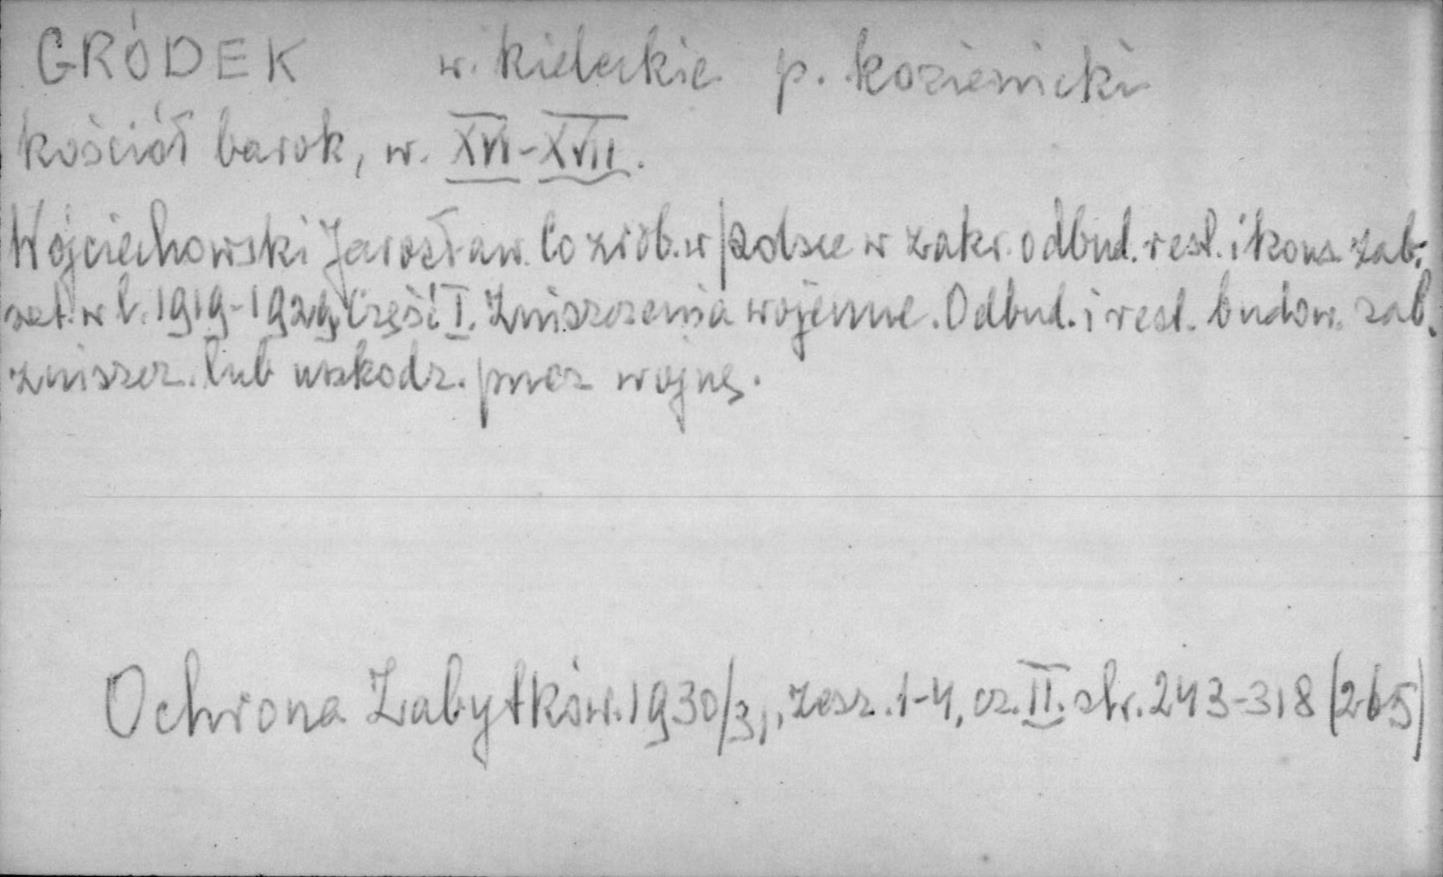 GRÓDEK w. kieleckie p. kozienicki
kościół barok, w. XVI-XVII.
Wojciechowski Jarosław. Co zrob. w Polsce w zakr. odbud. rest. i kons. zab.
szt. w l. 1919-1929, Część I. Zniszczenia wojenne. Odbud. i rest. budow. zab.
zniszcz. lub uszkodz. przez wojnę.
Ochrona Zabytków. 1930/31, zesz. 1-4, cz. II. str. 243-318 (265)